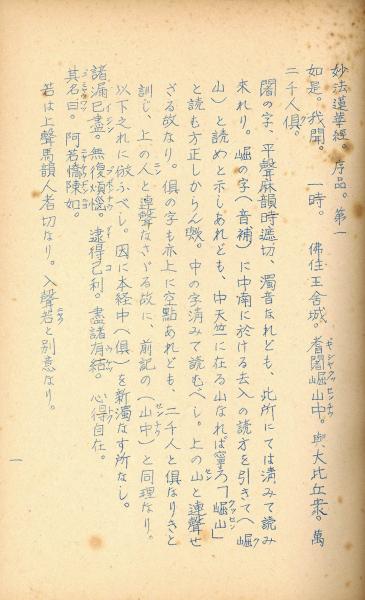 妙法蓮華經。序品。第一
如是。我聞。　一時。　佛住王舍城。耆闍崛山中。與大比丘衆。萬
二千人俱。
闍の字、平聲麻韻時遮切、濁音なれども、此所にては淸みて読み
来れり。崛の字（音補）に中南に於ける去入の読方を引きて（崛
山）と読めと示しあれども、中天竺に在る山なれば寧ろ「崛山」
と読む方正しからん歟。中の字淸みて読むべし。上の山と連聲せ
ざる故なり。俱の字も亦上に空點あれども、二千人と俱なりきと
訓じ、上の人と連聲なさゞる故に、前記の（山中）と同理なり。
以下之れに倣ふべし。因に本経中（俱）を新濁なす所なし。
諸漏已盡。無復煩惱。逮得己利。盡諸有結。心得自在。
其名曰。阿若憍陳如。
若は上聲馬韻人者切なり。入聲若と別意なり。
一